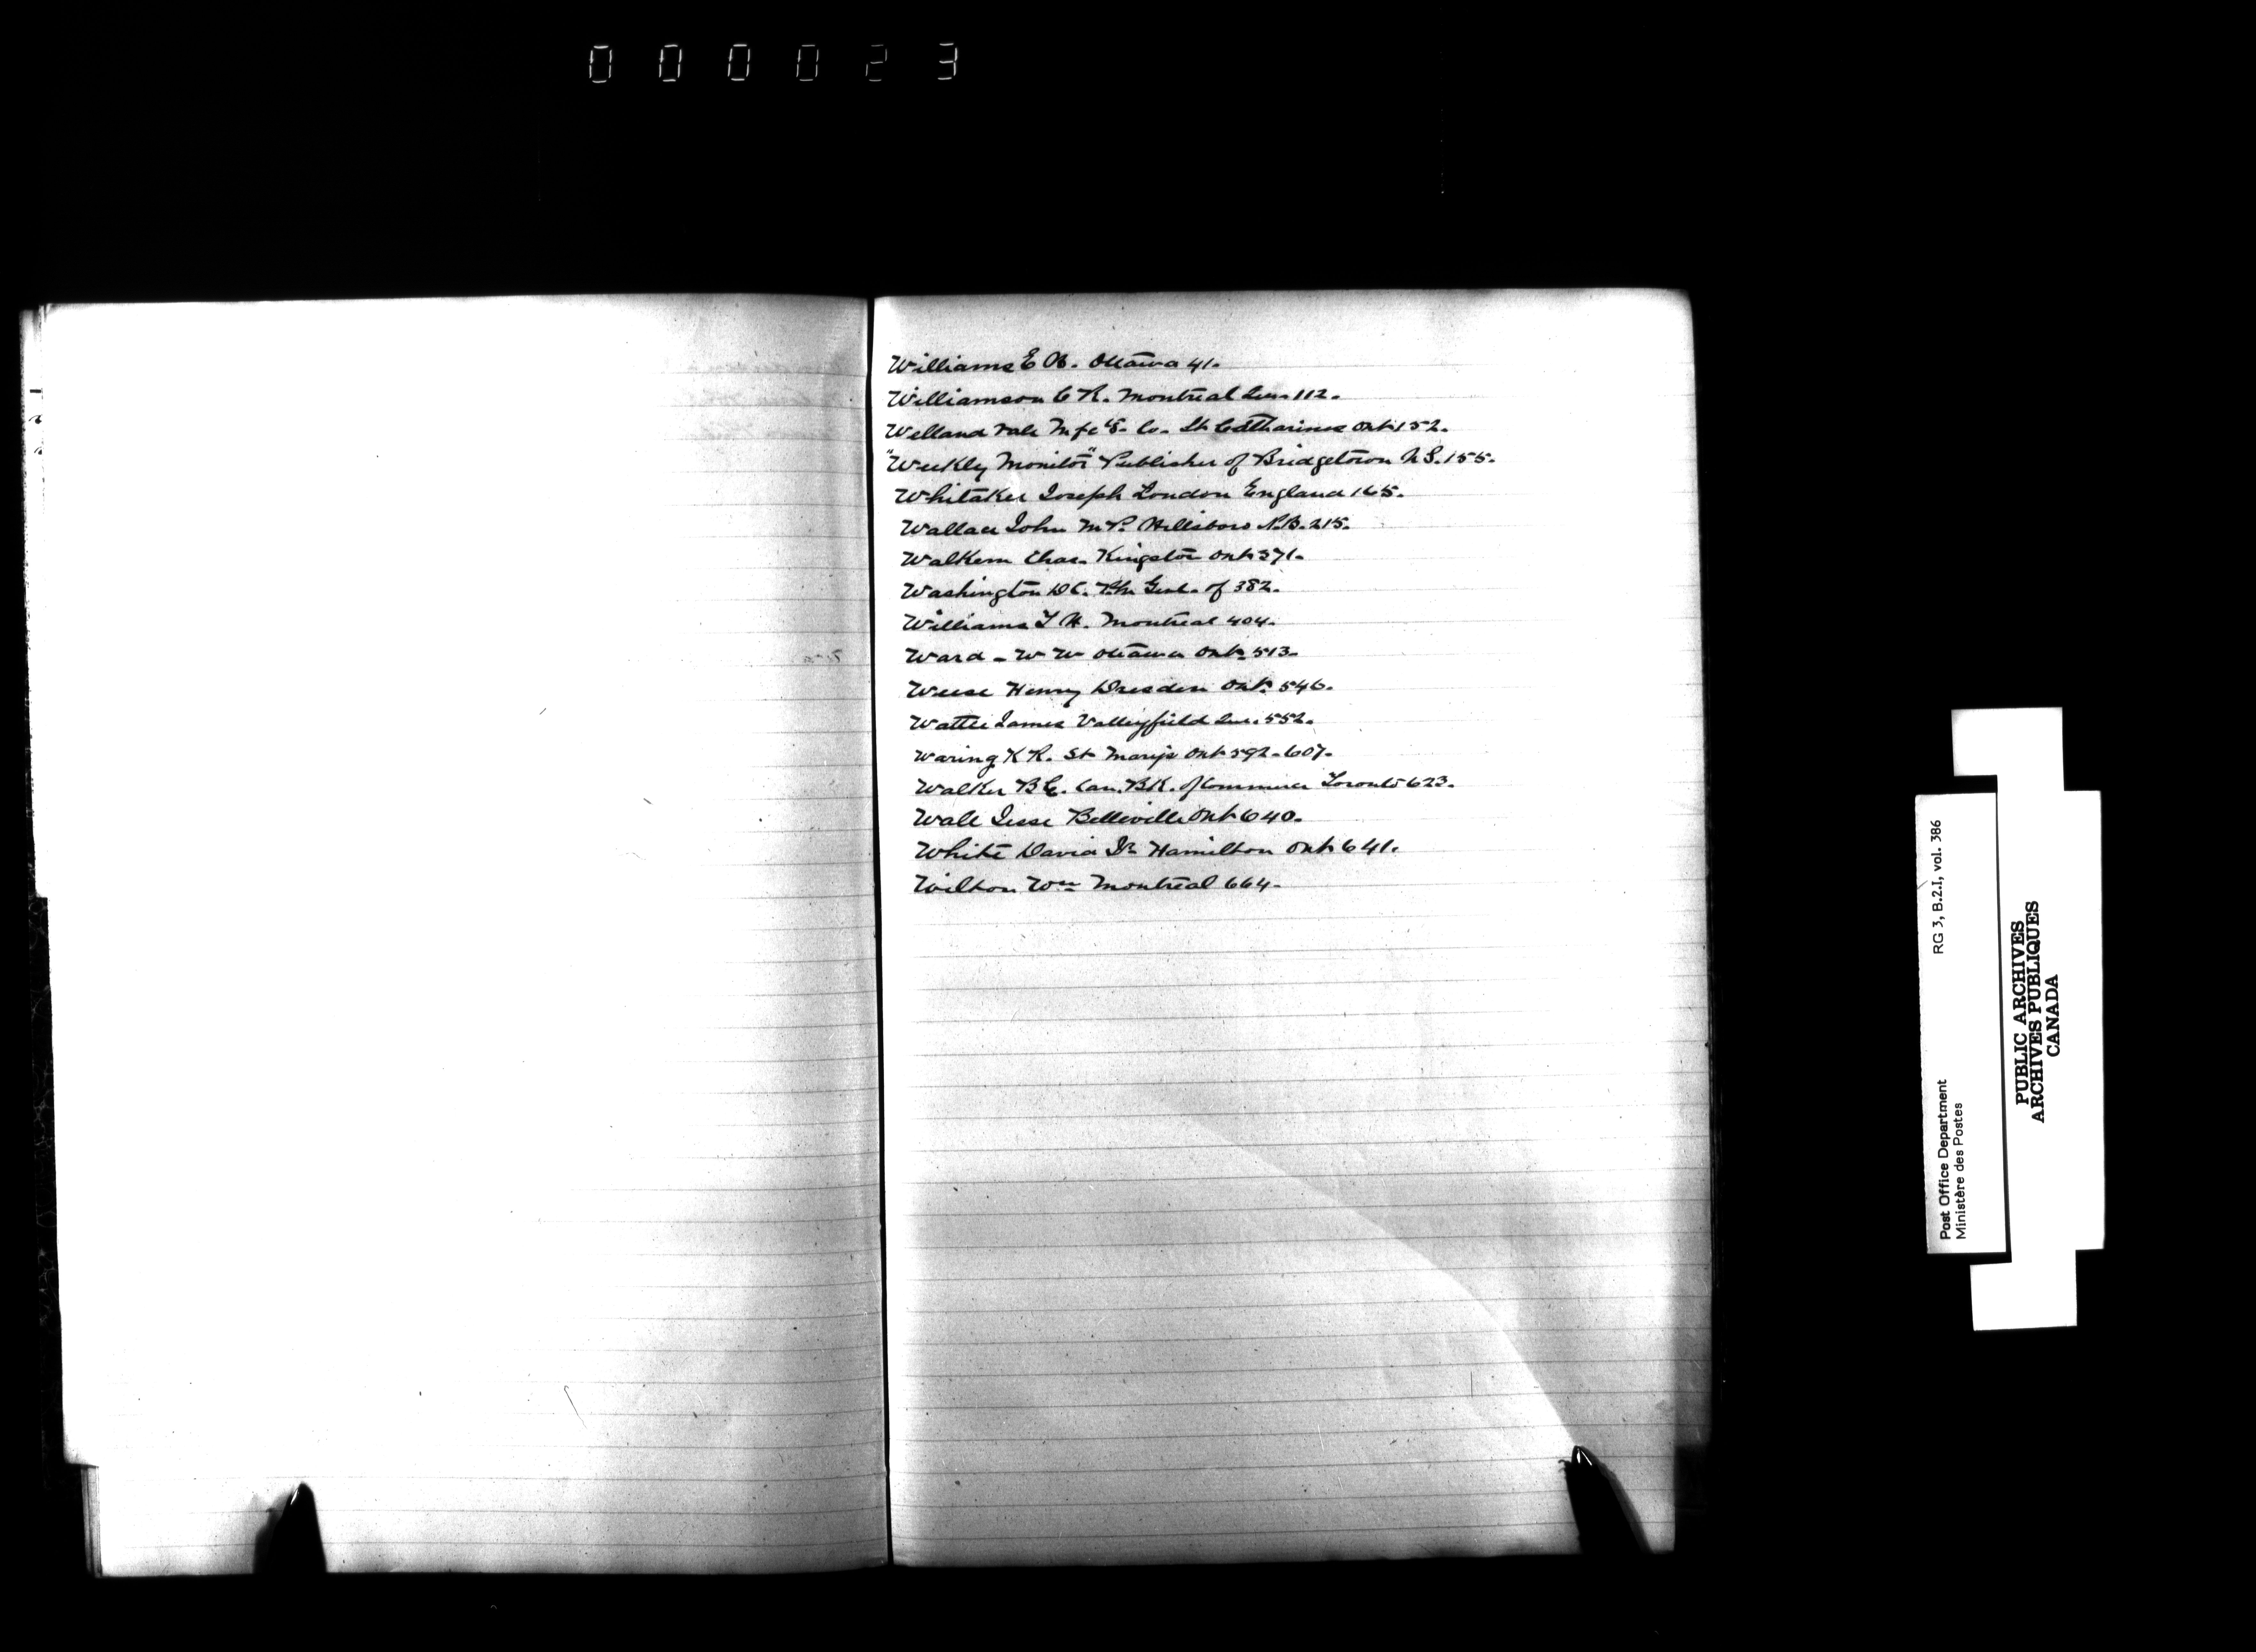 000023
Williams E A. Ottawa 41.
Williamson C R. Montreal Que. 112.
Welland Vale Mfg Co. St Catharines Ont 152.
"Weekly Monitor" Publisher of Bridgetown N.S. 155.
Whitaker Joseph London England 165.
Wallace John M.P. Hillsboro N.B. 215.
Walkem Chas. Kingston Ont 371.
Washington D.C. P.M. Genl. of 382.
Williams T H. Montreal 404.
Ward - W W Ottawa Ont. 513.
Weese Henry Dresden Ont. 546.
Wattie James Valleyfield Que. 552.
Waring K R. St Marys Ont 592-607.
Walker B E. Can. Bk. of Commerce Toronto 623.
Wale Jesse Belleville Ont 640.
White David Jr Hamilton Ont 641.
Wilton Wm Montreal 664.
Post Office Department RG 3, B.2.I, vol. 386
Ministère des Postes
PUBLIC ARCHIVES
ARCHIVES PUBLIQUES
CANADA